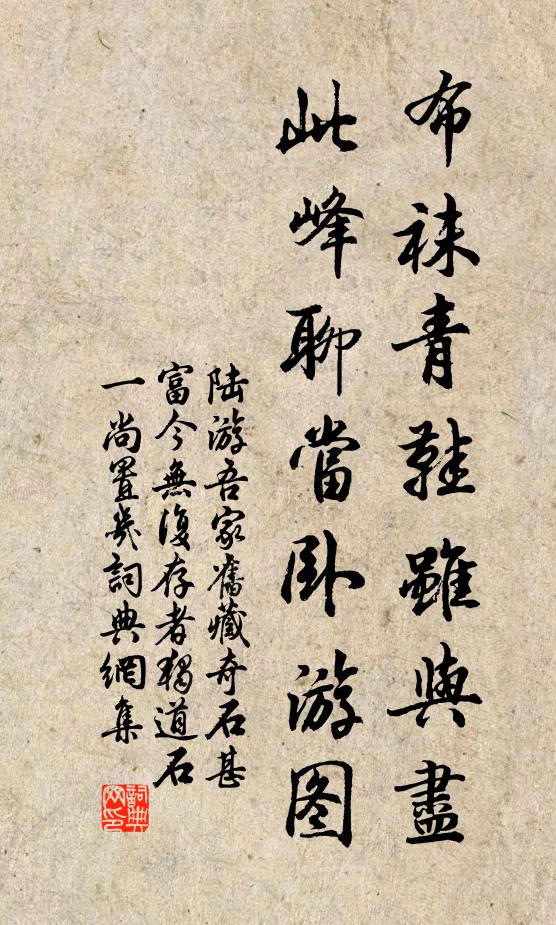 布袜青鞋雖興盡
此峰聊當卧游图
陆游吾家舊藏奇石甚
富今無復存者獨道石
一尚置几詞典網集
詞典
网印